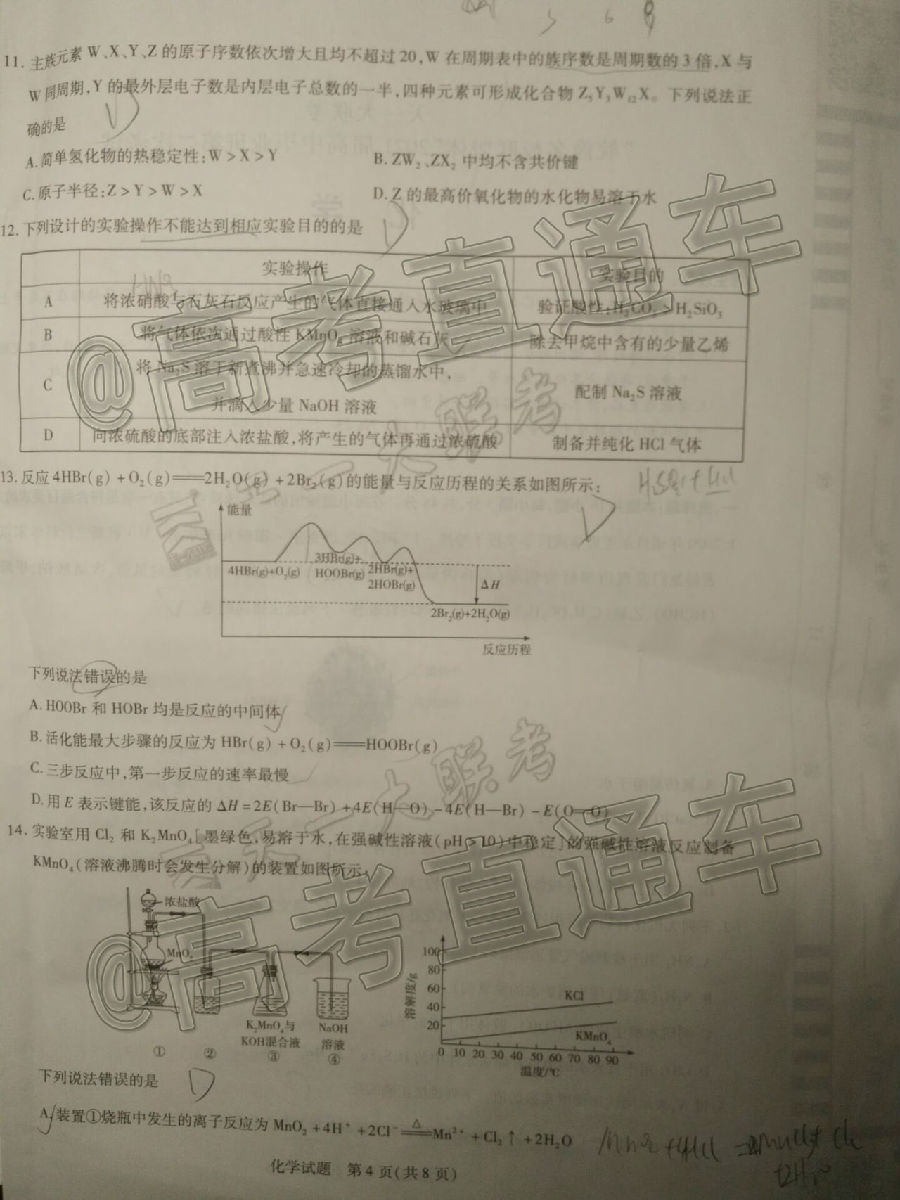 11. 主族元素 W、X、Y、Z 的原子序数依次增大且均不超过20,W 在周期表中的族序数是周期数的3倍,X 与
W 同周期,Y 的最外层电子数是内层电子总数的一半,四种元素可形成化合物 Z₅Y₃W₁₂X。下列说法正
确的是
A.简单氢化物的热稳定性:W>X>Y
B.ZW₂、ZX₂ 中均不含共价键
C.原子半径:Z>Y>W>X
D.Z 的最高价氧化物的水化物易溶于水
12.下列设计的实验操作不能达到相应实验目的的是
实验操作 实验目的
A 将浓硝酸与石灰石反应产生的气体直接通入水玻璃中 验证酸性:H₂CO₃>H₂SiO₃
B 将气体依次通过酸性 KMnO₄ 溶液和碱石灰 除去甲烷中含有的少量乙烯
C 将 Na₂S 溶于新煮沸并急速冷却的蒸馏水中,
并滴入少量 NaOH 溶液 配制 Na₂S 溶液
D 向浓硫酸的底部注入浓盐酸,将产生的气体再通过浓硫酸 制备并纯化 HCl 气体
13.反应 4HBr(g)+O₂(g)══2H₂O(g)+2Br₂(g)的能量与反应历程的关系如图所示:
能量
4HBr(g)+O₂(g)
3HBr(g)+
HOOBr(g)
2HBr(g)+
2HOBr(g)
ΔH
2Br₂(g)+2H₂O(g)
反应历程
下列说法错误的是
A. HOOBr 和 HOBr 均是反应的中间体
B.活化能最大步骤的反应为 HBr(g)+O₂(g)══HOOBr(g)
C.三步反应中,第一步反应的速率最慢
D.用 E 表示键能,该反应的 ΔH=2E(Br—Br)+4E(H—O)-4E(H—Br)-E(O=O)
14.实验室用 Cl₂ 和 K₂MnO₄[墨绿色,易溶于水,在强碱性溶液(pH>10)中稳定]的强碱性溶液反应制备
KMnO₄(溶液沸腾时会发生分解)的装置如图所示:
浓盐酸
MnO₂
K₂MnO₄与
KOH混合液
NaOH
溶液
① ② ③ ④
溶解度/g
100
80
60
40
20
KCl
KMnO₄
0 10 20 30 40 50 60 70 80 90
温度/℃
下列说法错误的是
A.装置①烧瓶中发生的离子反应为 MnO₂+4H⁺+2Cl⁻ ═△═ Mn²⁺+Cl₂↑+2H₂O
化学试题 第4页(共8页)
@高考直通车
天一大联考
天一大联考
@高考直通车